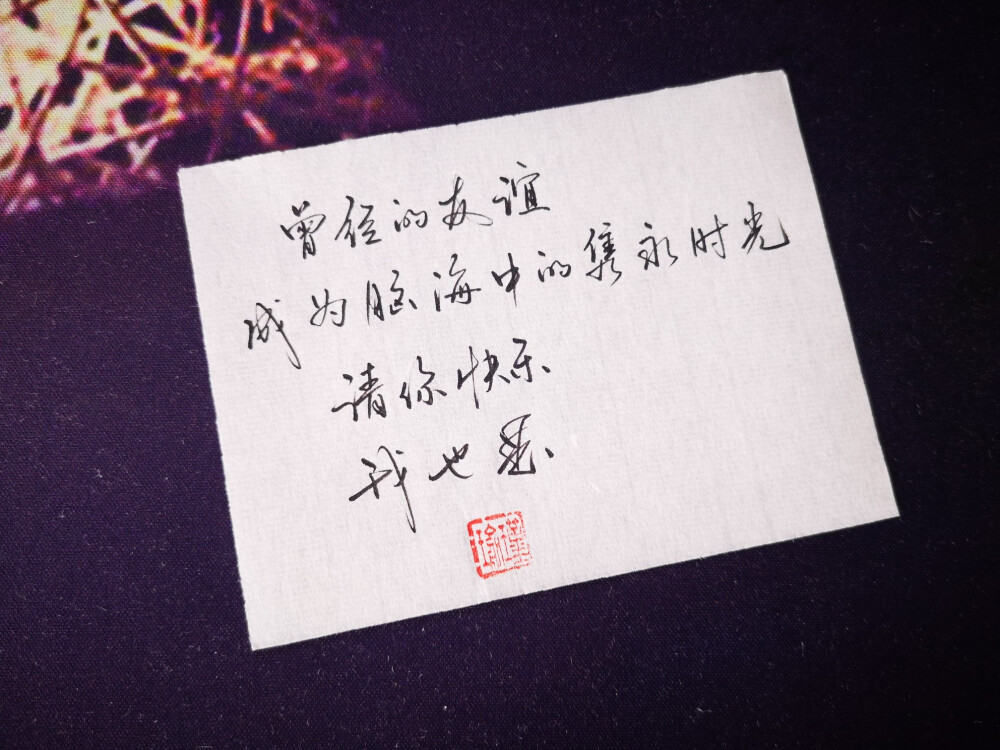 曾经的友谊
成为脑海中的隽永时光
请你快乐
我也是